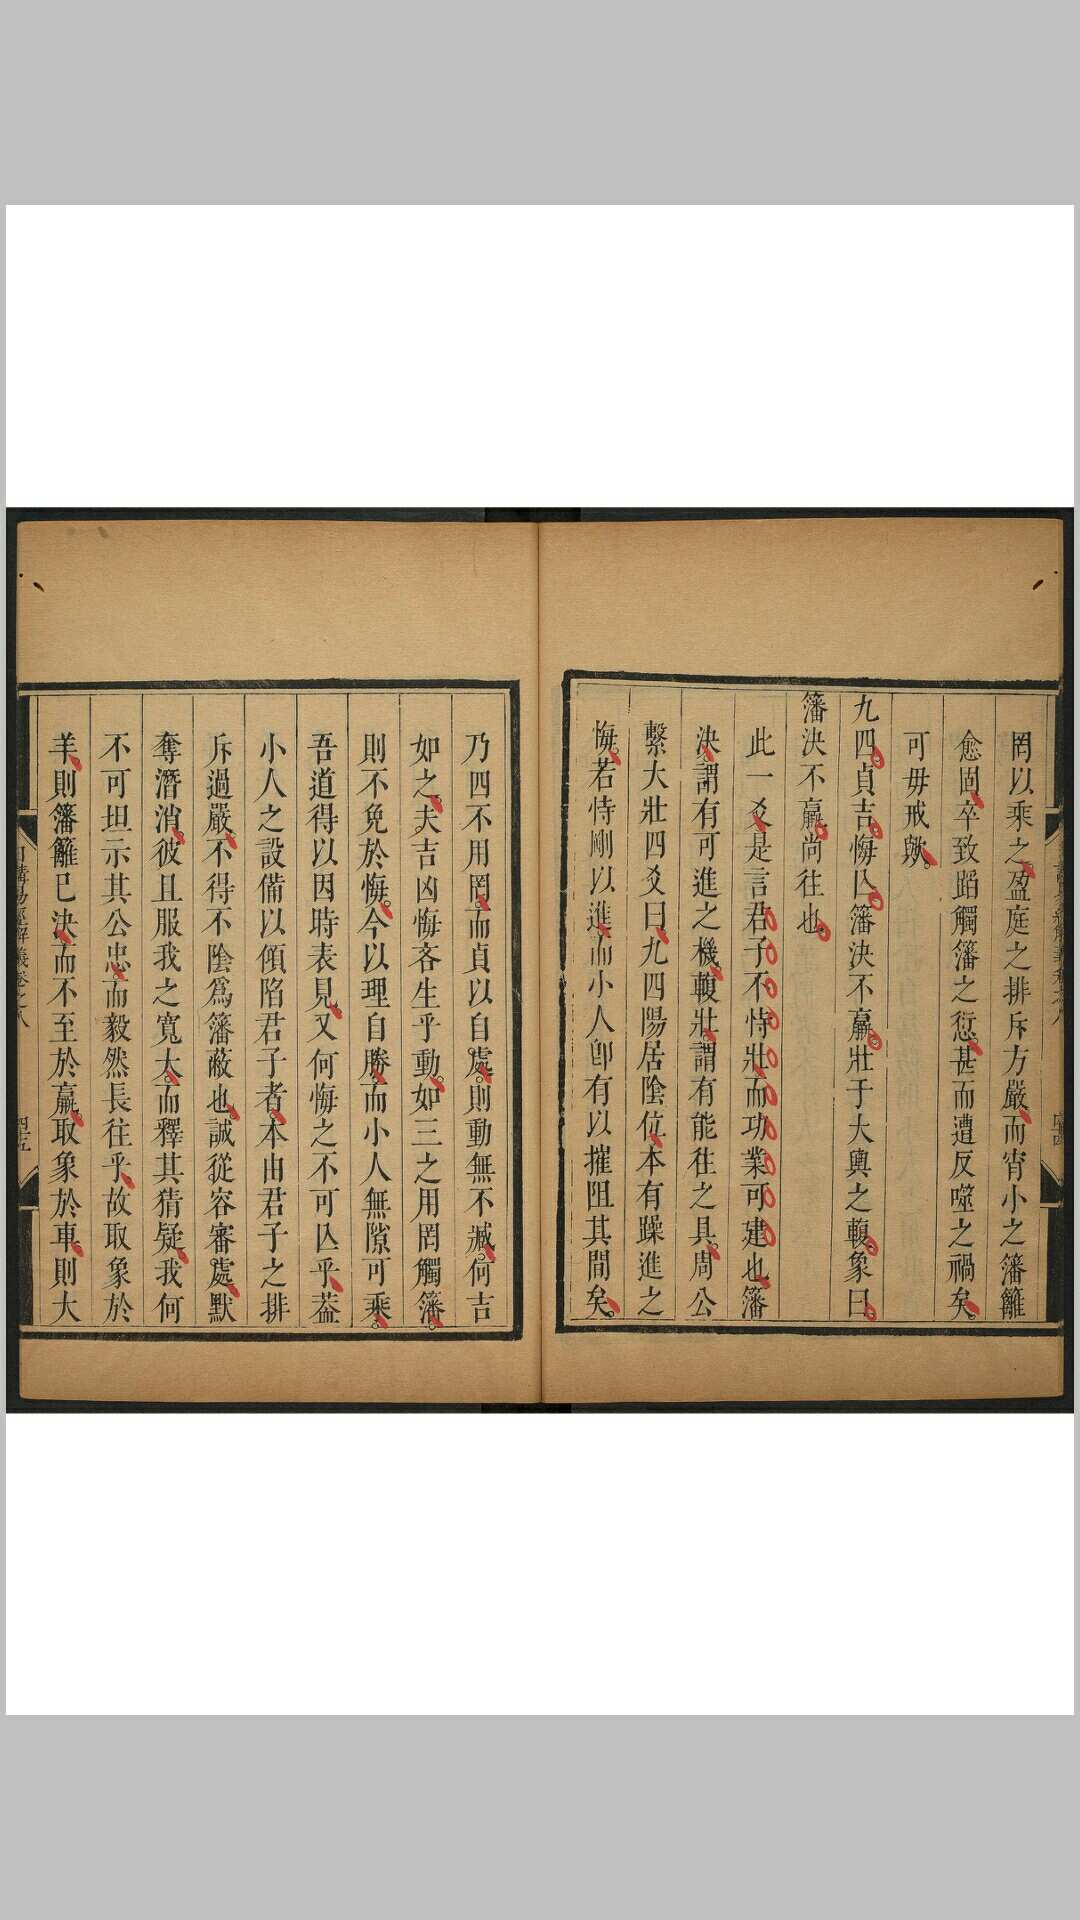 罔以乘之盈庭之排斥方嚴而宵小之籓籬
愈固卒致蹈觸籓之愆甚而遭反噬之禍矣
可毋戒歟
九四貞吉悔亾籓決不羸壯于大輿之輹象曰
籓決不羸尚往也
此一爻是言君子不恃壯而功業可建也籓
決謂有可進之機輹壯謂有能往之具周公
繫大壯四爻曰九四陽居陰位本有躁進之
悔若恃剛以進而小人卽有以摧阻其間矣
乃四不用罔而貞以自處則動無不臧何吉
如之夫吉凶悔吝生乎動如三之用罔觸籓
則不免於悔今以理自勝而小人無隙可乘
吾道得以因時表見又何悔之不可亾乎葢
小人之設備以傾陷君子者本由君子之排
斥過嚴不得不陰爲籓蔽也誠從容審處默
奪潛消彼且服我之寬大而釋其猜疑我何
不可坦示其公忠而毅然長往乎故取象於
羊則籓籬已決而不至於羸取象於車則大
日講易經解義卷之八
四十五